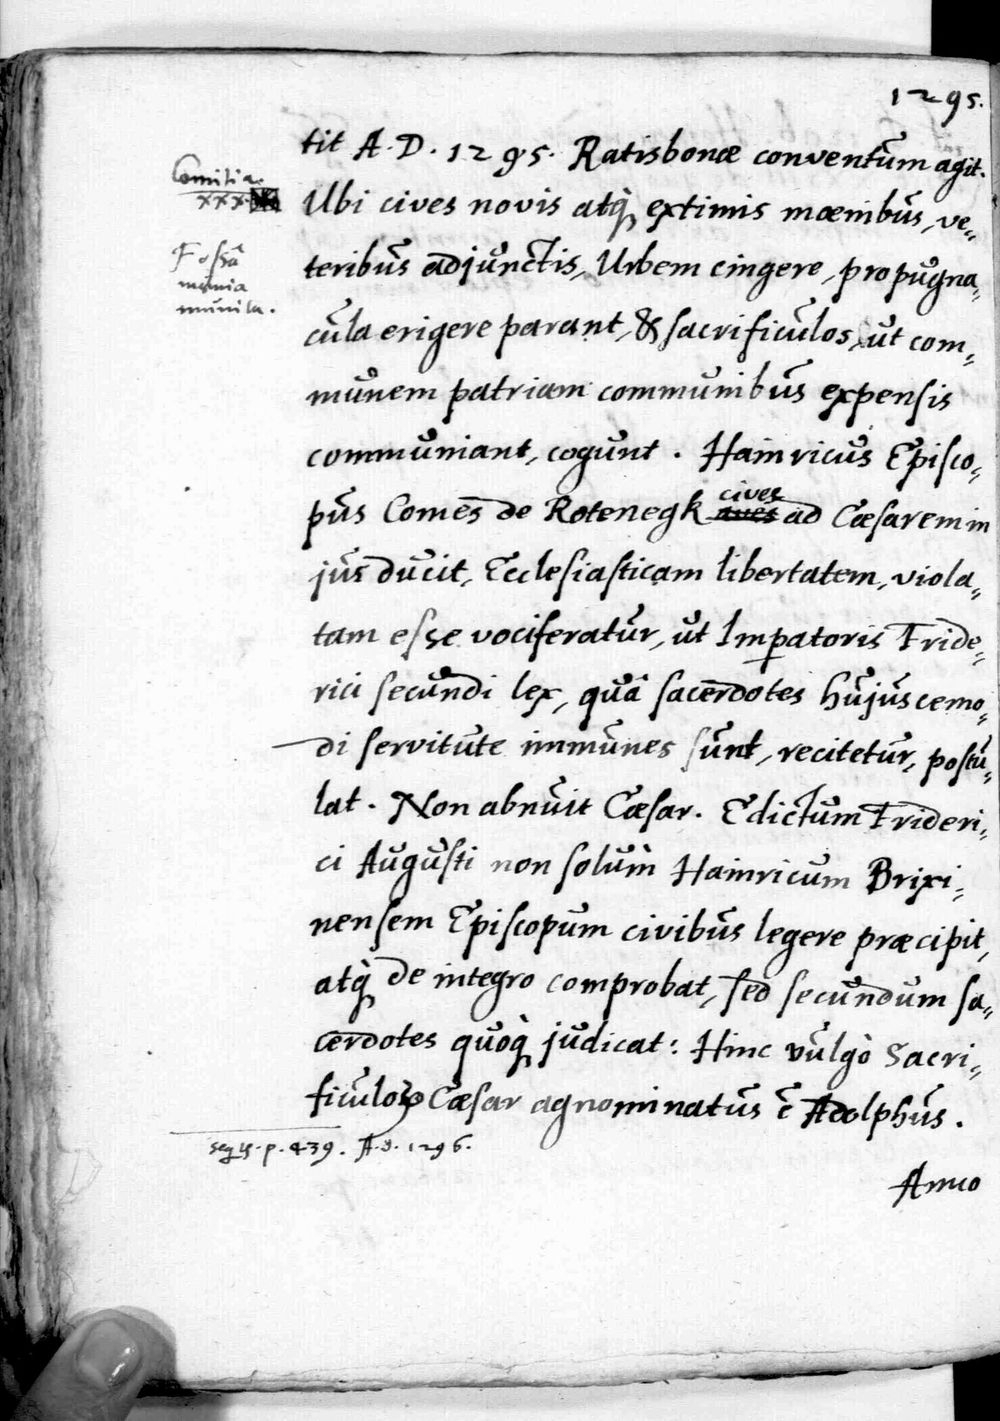 1295.
tit A. D. 1295. Ratisbonæ conventum agit.
Comitia.
xxx.
Ubi cives novis atq́; extimis mœnibus, ve-
Fossâ
mœnia
munita.
teribus adjunctis, Urbem cingere, propugna-
cula erigere parant, & sacrificulos, ut com-
munem patriam communibus expensis
communiant, cogunt. Hainricus Episco-
pus Comes de Rotenegk cives ad Cæsarem in
jus ducit, Ecclesiasticam libertatem, viola-
tam esse vociferatur, ut Imp̱atoris Fride-
rici secundi lex, quâ sacerdotes hujuscemo-
di servitute immunes sunt, recitetur, postu-
lat. Non abnuit Cæsar. Edictum Frideri-
ci Augusti non solum̀ Hainricum Brixi-
nensem Episcopum civibus legere præcipit,
atq́; de integro comprobat, sed secundum sa-
cerdotes quoq́; judicat: Hinc vulgò Sacri-
ficuloꝝ Cæsar agnominatus ē Adolphus.
p. 439. A. D. 1296.
Anno